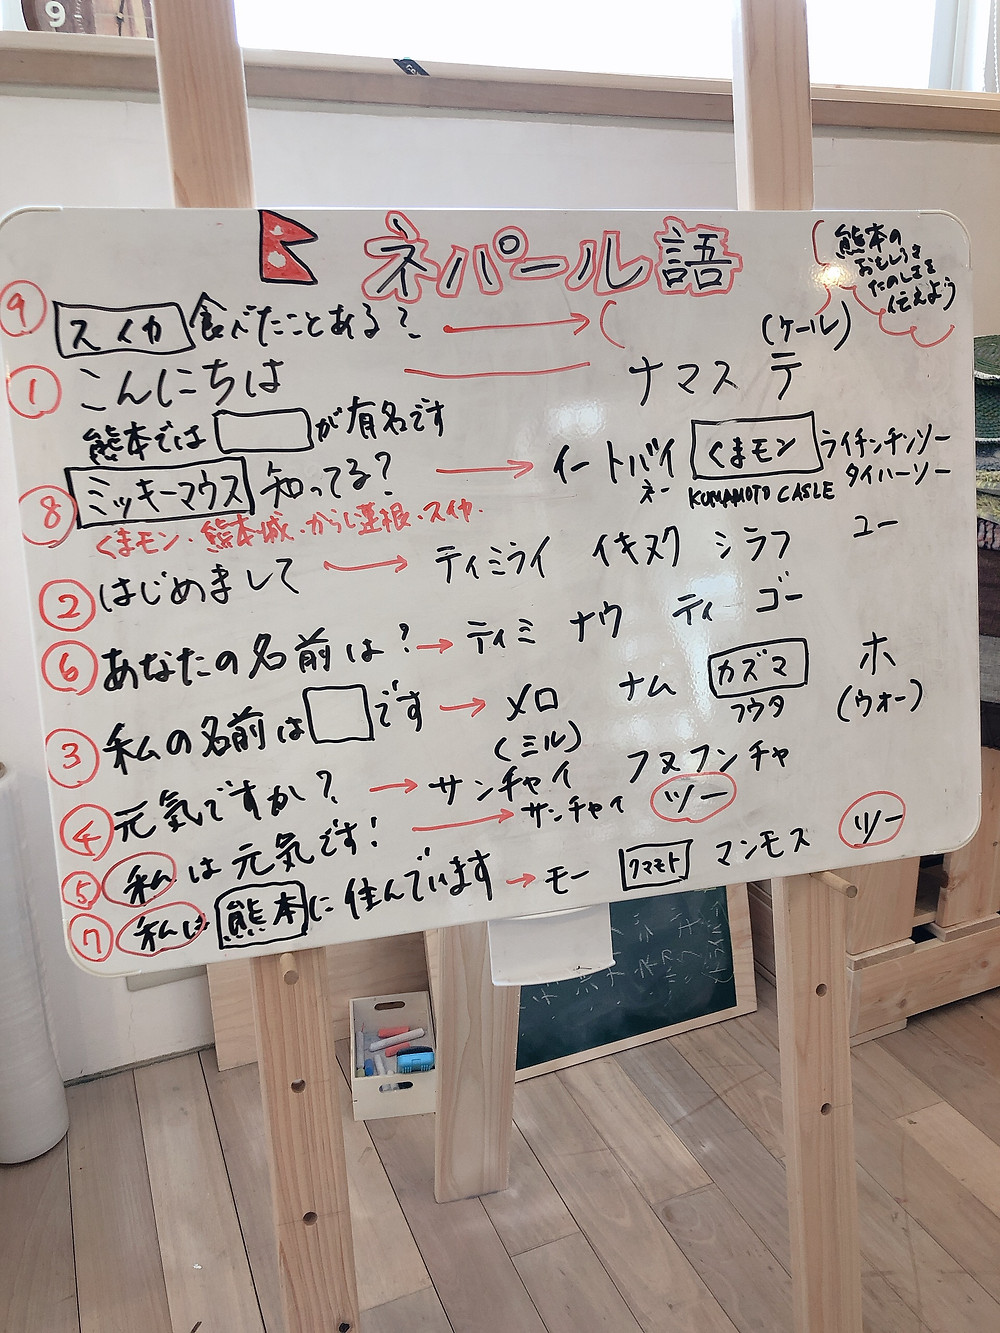 9
ネパール語
熊本の
おもしろさ
たのしさを
伝えよう
⑨ スイカ 食べたことある? → ( (ケール)
① こんにちは ― ナマス テ
熊本では □ が有名です
⑧ ミッキーマウス 知ってる? → イートバイ くまモン ライチンチンソー
ネー KUMAMOTO CASLE タイハーソー
くまモン・熊本城・からし蓮根・スイカ・
② はじめまして → ティミライ イキヌク シラフ ユー
⑥ あなたの名前は? → ティミ ナウ ティ ゴー
③ 私の名前は □ です → メロ ナム カズマ ホ
(ミル) フウタ (ウォー)
④ 元気ですか? → サンチャイ フヌフンチャ
⑤ 私は元気です! → サンチャイ ツー ツー
⑦ 私は 熊本 に住んでいます → モー クマモト マンモス